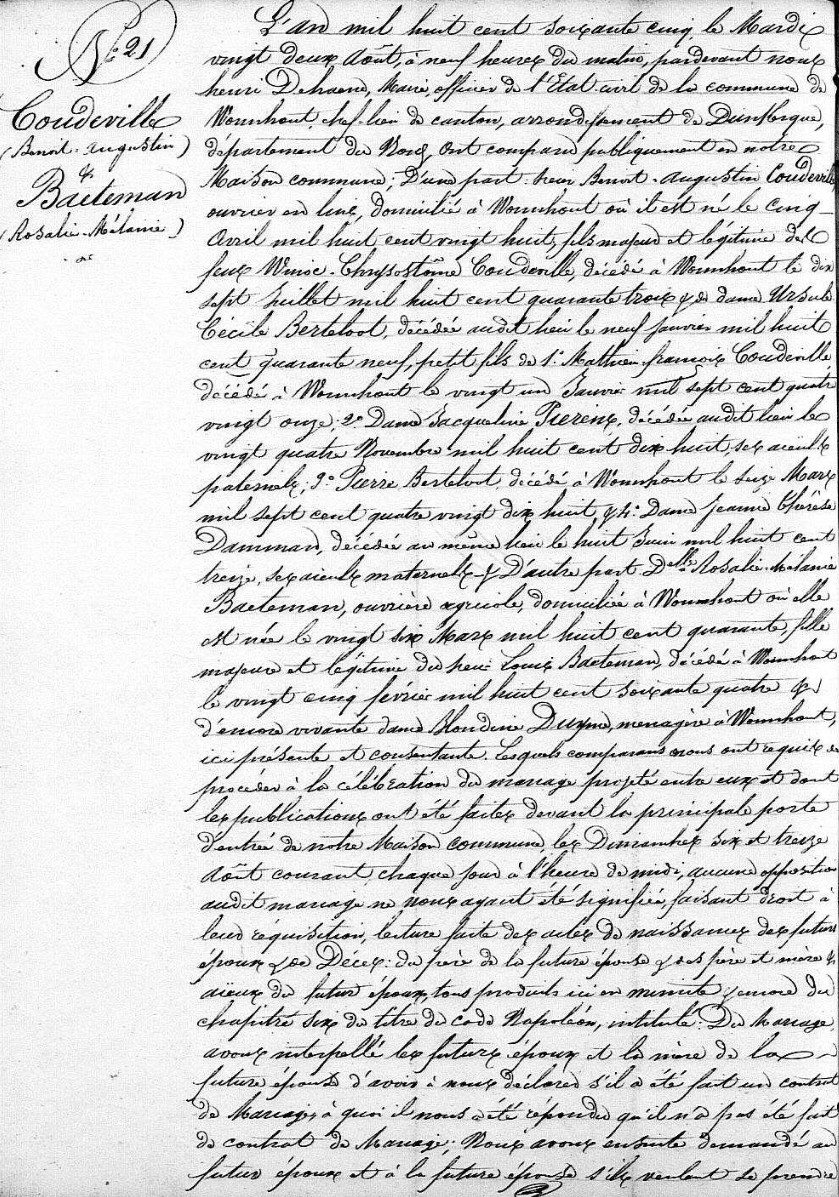 N.° 21
Coudeville
(Benoit-Augustin)
&
Baeteman
(Rosalie-Mélanie)
L'an mil huit cent soixante cinq, le Mardi
vingt deux Août, à neuf heures du matin, pardevant nous
henri Dehaene, Maire, officier de l'Etat-civil de la commune de
Wormhout, chef-lieu de canton, arrondissement de Dunkerque,
département du Nord, ont comparu publiquement en notre
Maison commune; D'une part: sieur Benoit-Augustin Coudeville
ouvrier en lin, domicilié à Wormhout où il est né le cinq
Avril mil huit cent vingt huit, fils majeur et légitime de
feux Winoc-Chrysostôme Coudeville, décédé à Wormhout le dix
sept Juillet mil huit cent quarante trois & de dame Ursule
Cécile Berteloot, décédée audit lieu le neuf Janvier mil huit
cent quarante neuf, petit fils de 1.° Mathieu-françois Coudeville
décédé à Wormhout le vingt un Janvier mil sept cent quatre
vingt onze; 2.° Dame Jacqueline Pierens, décédée audit lieu le
vingt quatre Novembre mil huit cent dix huit, ses aïeuls
paternels; 3.° Pierre Berteloot, décédé à Wormhout le seize Mars
mil sept cent quatre vingt dix huit & 4.° Dame Jeanne Thérèse
Damman, décédée au même lieu le huit Juin mil huit cent
treize, ses aïeuls maternels & D'autre part D.elle Rosalie-Mélanie
Baeteman, ouvrière agricole, domiciliée à Wormhout où elle
est née le vingt six Mars mil huit cent quarante, fille
majeure et légitime du sieur Louis Baeteman, décédé à Wormhout
le vingt cinq février mil huit cent soixante quatre &
d'encore vivante dame Blondine Duyme, ménagère à Wormhout,
ici présente et consentante. Lesquels comparans nous ont requis de
procéder à la célébration du mariage projeté entre eux et dont
les publications ont été faites devant la principale porte
d'entrée de notre Maison commune, les Dimanches six et treize
Août courant, chaque jour à l'heure de midi, aucune opposition
audit mariage ne nous ayant été signifiée, faisant droit à
leur requisition, lecture faite des actes de naissances des futurs
époux & de Décès: du père de la future épouse & des père et mère &
aïeux du futur époux, tous produits ici en minute & encore du
chapitre six du titre du code Napoléon, intitulé: Du Mariage
avons interpellé les futurs époux et la mère de la
future épouse d'avoir à nous déclarer s'il a été fait un contrat
de Mariage, à quoi il nous a été répondu qu'il n'a pas été fait
de contrat de Mariage; Nous avons ensuite demandé au
futur époux et à la future épouse s'ils veulent se prendre